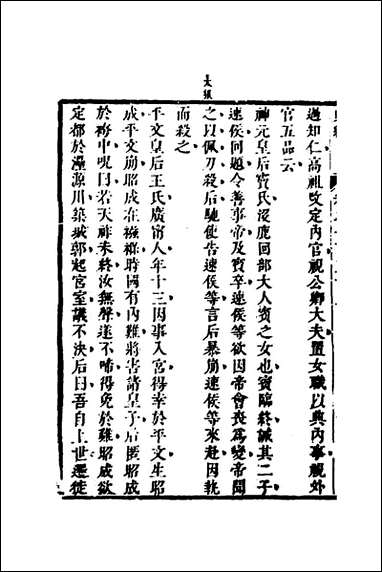 大綱
過知仁高祖改定内官視公卿大夫置女職以典内事視外
官五品云
神元皇后竇氏沒鹿回部大人賓之女也賓臨終誡其二子
速侯回題令善事帝及賓卒速侯等欲因帝會喪爲變帝聞
之以佩刀殺后馳使告速侯等言后暴崩速侯等來赴因執
而殺之
平文皇后王氏廣甯人年十三因事入宮得幸於平文生昭
成平文崩昭成在襁褓時國有内難將害諸皇子后匿昭成
於袴中呪曰若天祚未終汝無聲遂不啼得免於難昭成欲
定都於灅源川築城郭起宮室議不決后曰吾自上世遷徙